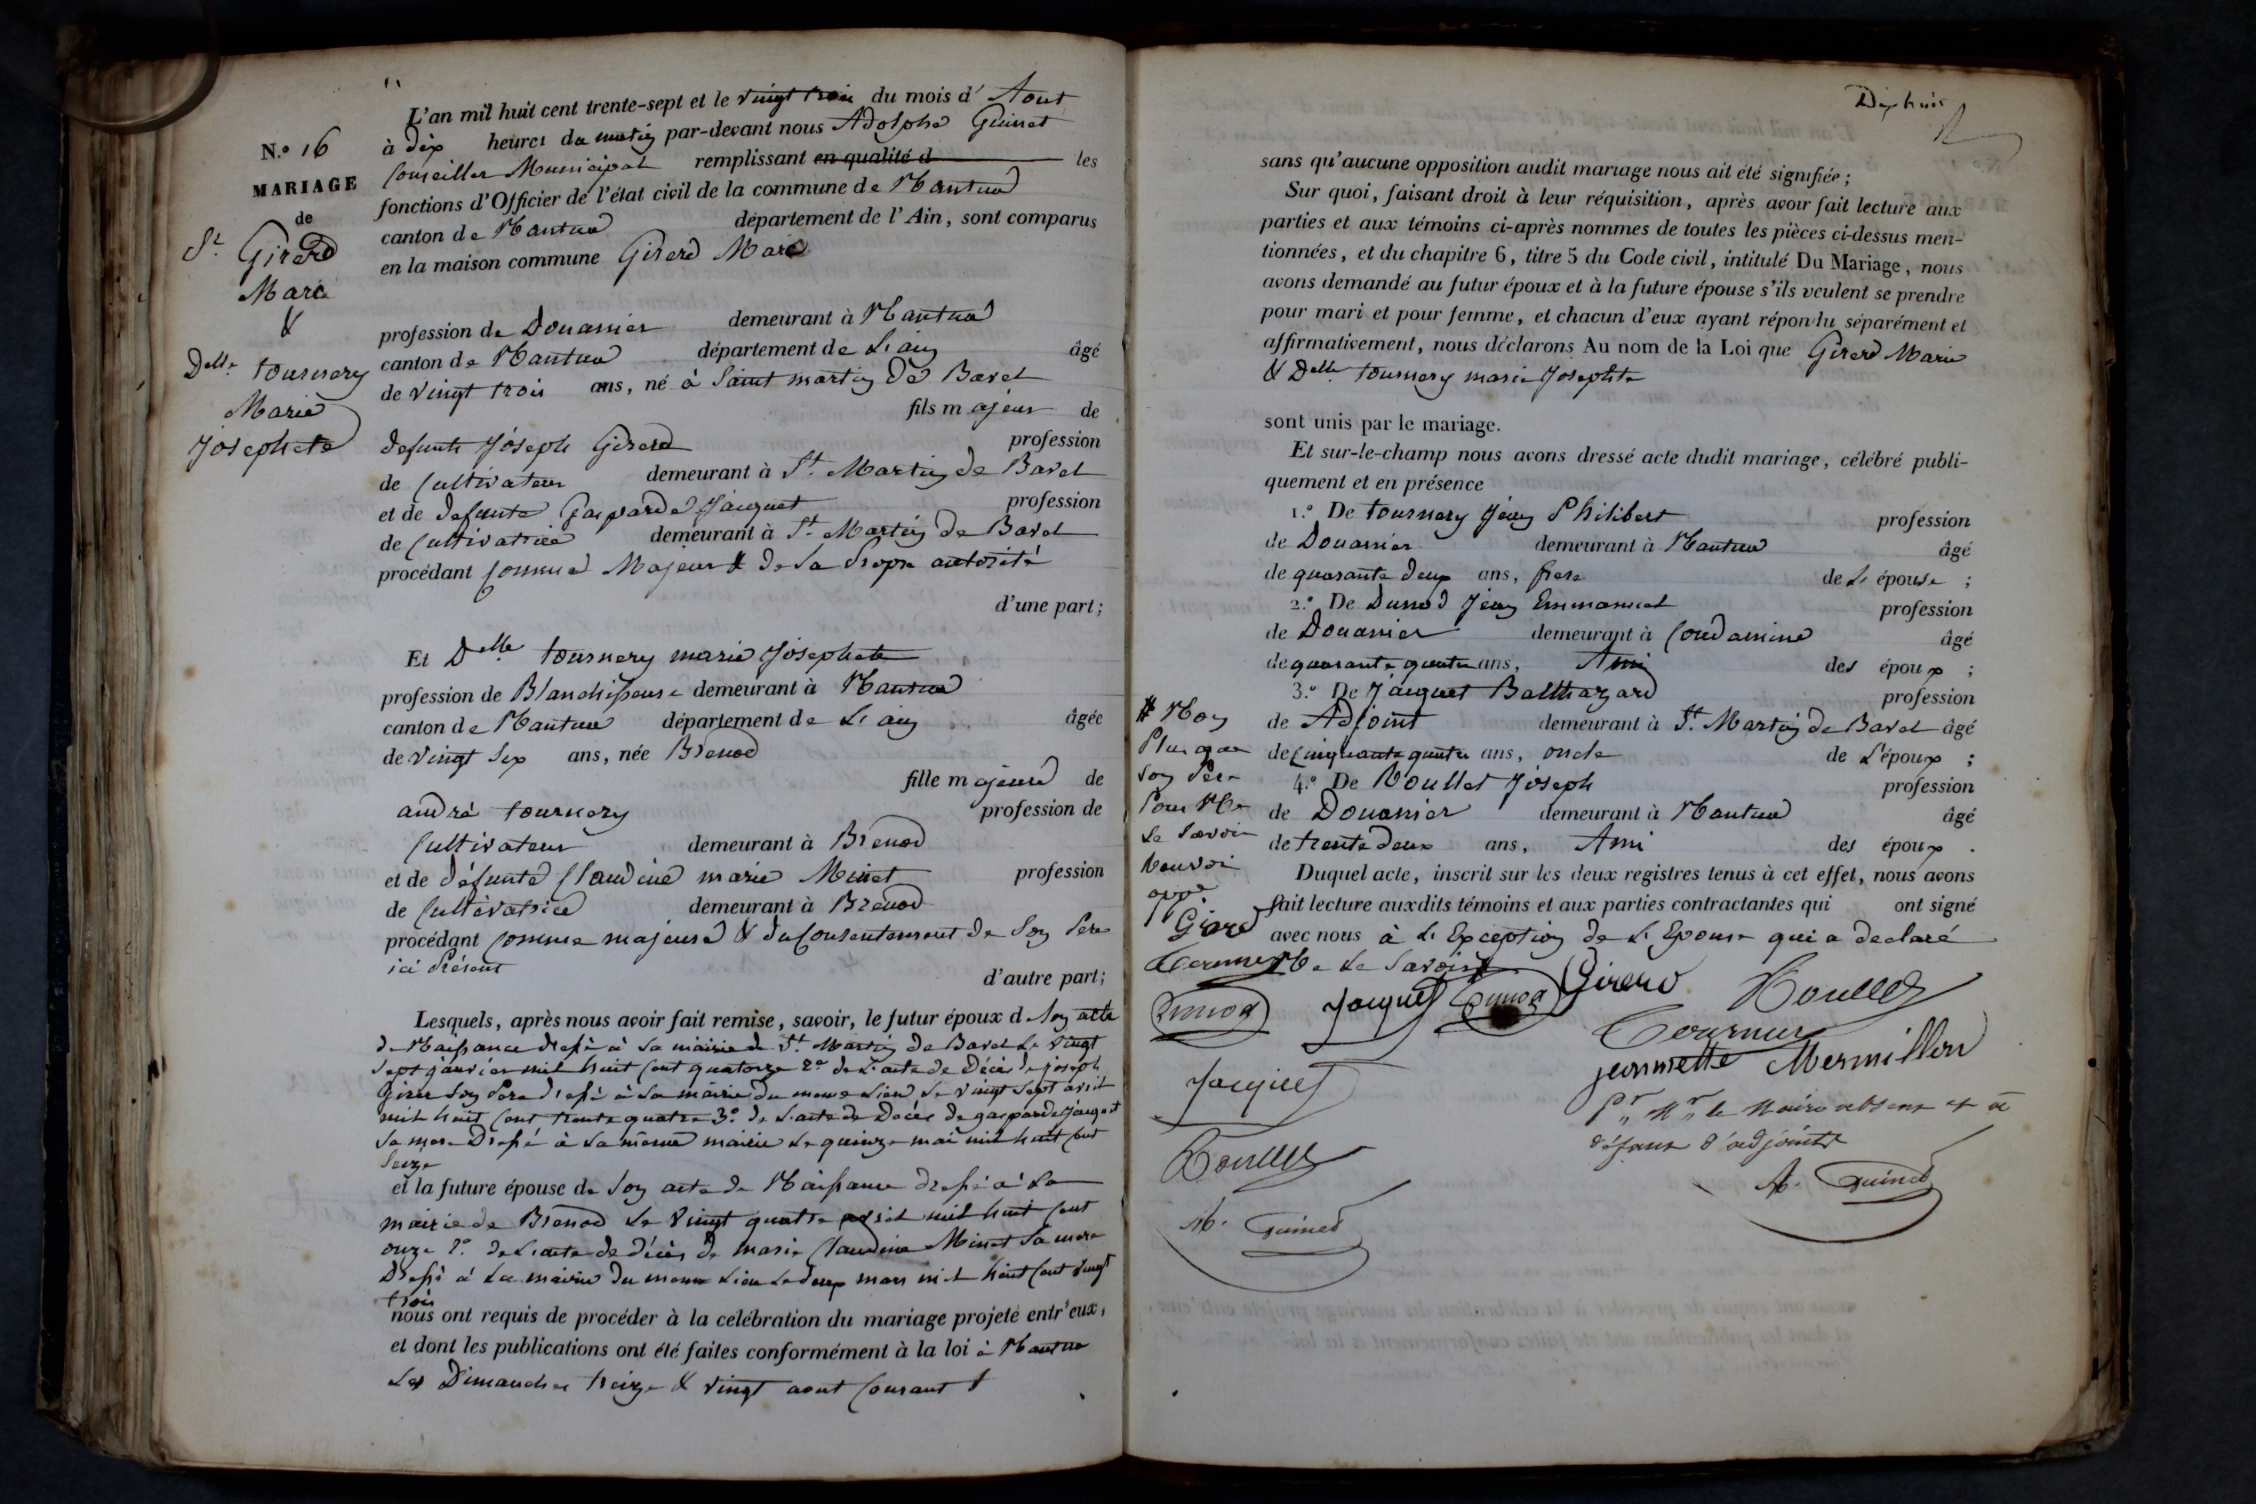 L'an mil huit cent trente-sept et le vingt trois du mois d' Aout
N.º 16
à dix heures du matin par-devant nous Adolphe Guinet
MARIAGE
Conseiller Municipal remplissant en qualité d les
fonctions d'Officier de l'état civil de la commune de Nantua
de
canton de Nantua département de l'Ain, sont comparus
Sr. Girerd
en la maison commune Girerd Marie
Marie
&
profession de Douanier demeurant à Nantua
Delle. tournery
canton de Nantua département de L'ain âgé
de vingt trois ans, né à Saint martin de Bavel
Marie
fils majeur de
Josephete
defunt Joseph Girerd profession
de Cultivateur demeurant à St. Martin de Bavel
et de defunte Gasparde Jacquet profession
de Cultivatrice demeurant à St. Martin de Bavel
procédant comme Majeur & de sa Propre autorité
d'une part;
Et Delle tournery marie Josephete
profession de Blanchisseuse demeurant à Nantua
canton de Nantua département de L'ain âgée
de vingt six ans, née Brenod
fille majeure de
andré tournery profession de
Cultivateur demeurant à Brenod
et de défunte Claudine marie Minet profession
de Cultivatrice demeurant à Brenod
procédant comme majeure & du Consentement de Son Pere
ici Présent
d'autre part;
Lesquels, après nous avoir fait remise, savoir, le futur époux d Son acte
de Naissance dressé à la mairie de St. Martin de Bavel Le vingt
Sept janvier mil huit cent quatorze 2º de L'acte de Décès de joseph
Girer Son Pere dressé à la mairie du meme Lieu Le vingt Sept avril
mil huit cent trente quatre 3º de L'acte de Décès de gasparde Jacquet
Sa mere Dressé à La même mairie Le quinze mai mil huit cent
Seize
et la future épouse de Son acte de Naissance dressé à La
mairie de Brenod Le vingt quatre avril mil huit cent
onze 2º. de L'acte de décès de marie Claudine Minet Sa mere
Dressé à La mairie du meme Lieu Le deux mars mil huit cent vingt
trois
nous ont requis de procéder à la celébration du mariage projeté entr'eux,
et dont les publications ont été faites conformément à la loi à Nantua
Les Dimanches treize & vingt aout Courant
Dix huit
sans qu'aucune opposition audit mariage nous ait été signifiée;
Sur quoi, faisant droit à leur réquisition, après avoir fait lecture aux
parties et aux témoins ci-après nommes de toutes les pièces ci-dessus men-
tionnées, et du chapitre 6, titre 5 du Code civil, intitulé Du Mariage, nous
avons demandé au futur époux et à la future épouse s'ils veulent se prendre
pour mari et pour femme, et chacun d'eux ayant répondu séparément et
affirmativement, nous déclarons Au nom de la Loi que Girerd Marie
& Delle. tournery marie Josephte
sont unis par le mariage.
Et sur-le-champ nous avons dressé acte dudit mariage, célébré publi-
quement et en présence
1.º De tournery Jean Philibert profession
de Douanier demeurant à Nantua âgé
de quarante deux ans, frere de L' épouse ;
2.º De Dunod Jean Emmanuel profession
de Douanier demeurant à Condamine âgé
de quarante quatre ans, Ami des époux ;
3.º De Jacquet Balthazard profession
de Adjoint demeurant à St. Martin de Bavel âgé
de Cinquante quatre ans, oncle de L'époux ;
4.º De Roullet Joseph profession
de Douanier demeurant à Nantua âgé
de trente deux ans, Ami des époux .
Duquel acte, inscrit sur les deux registres tenus à cet effet, nous avons
fait lecture auxdits témoins et aux parties contractantes qui ont signé
avec nous à L'Exception de L'Epouse qui a declaré
Ne Le Savoir
# Non
Plus que
Son Pere
Pour Ne
Le Savoir
appé.
Girerd
Tournery
Dunod Jacquet Dunod Girerd Roullet
Tournery
jeannette Mermillon
Jacquet
Pr. Mr. le Maire absent et à
défaut d'adjoints
Roullet
A. Guinet
A. Guinet